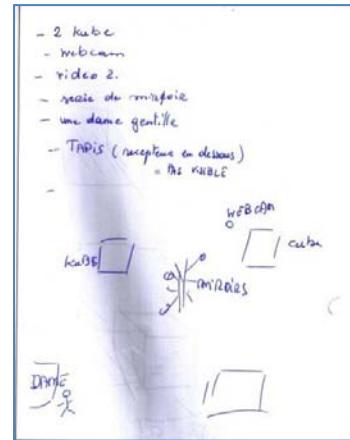 - 2 kube
- webcam
- video 2.
- serie de miroir
- une dame gentille
- TAPIS (recepteur en dessous)
= PAS VISIBLE
-
WEBCAM
KUBE
cube
MIROIRS
DAME